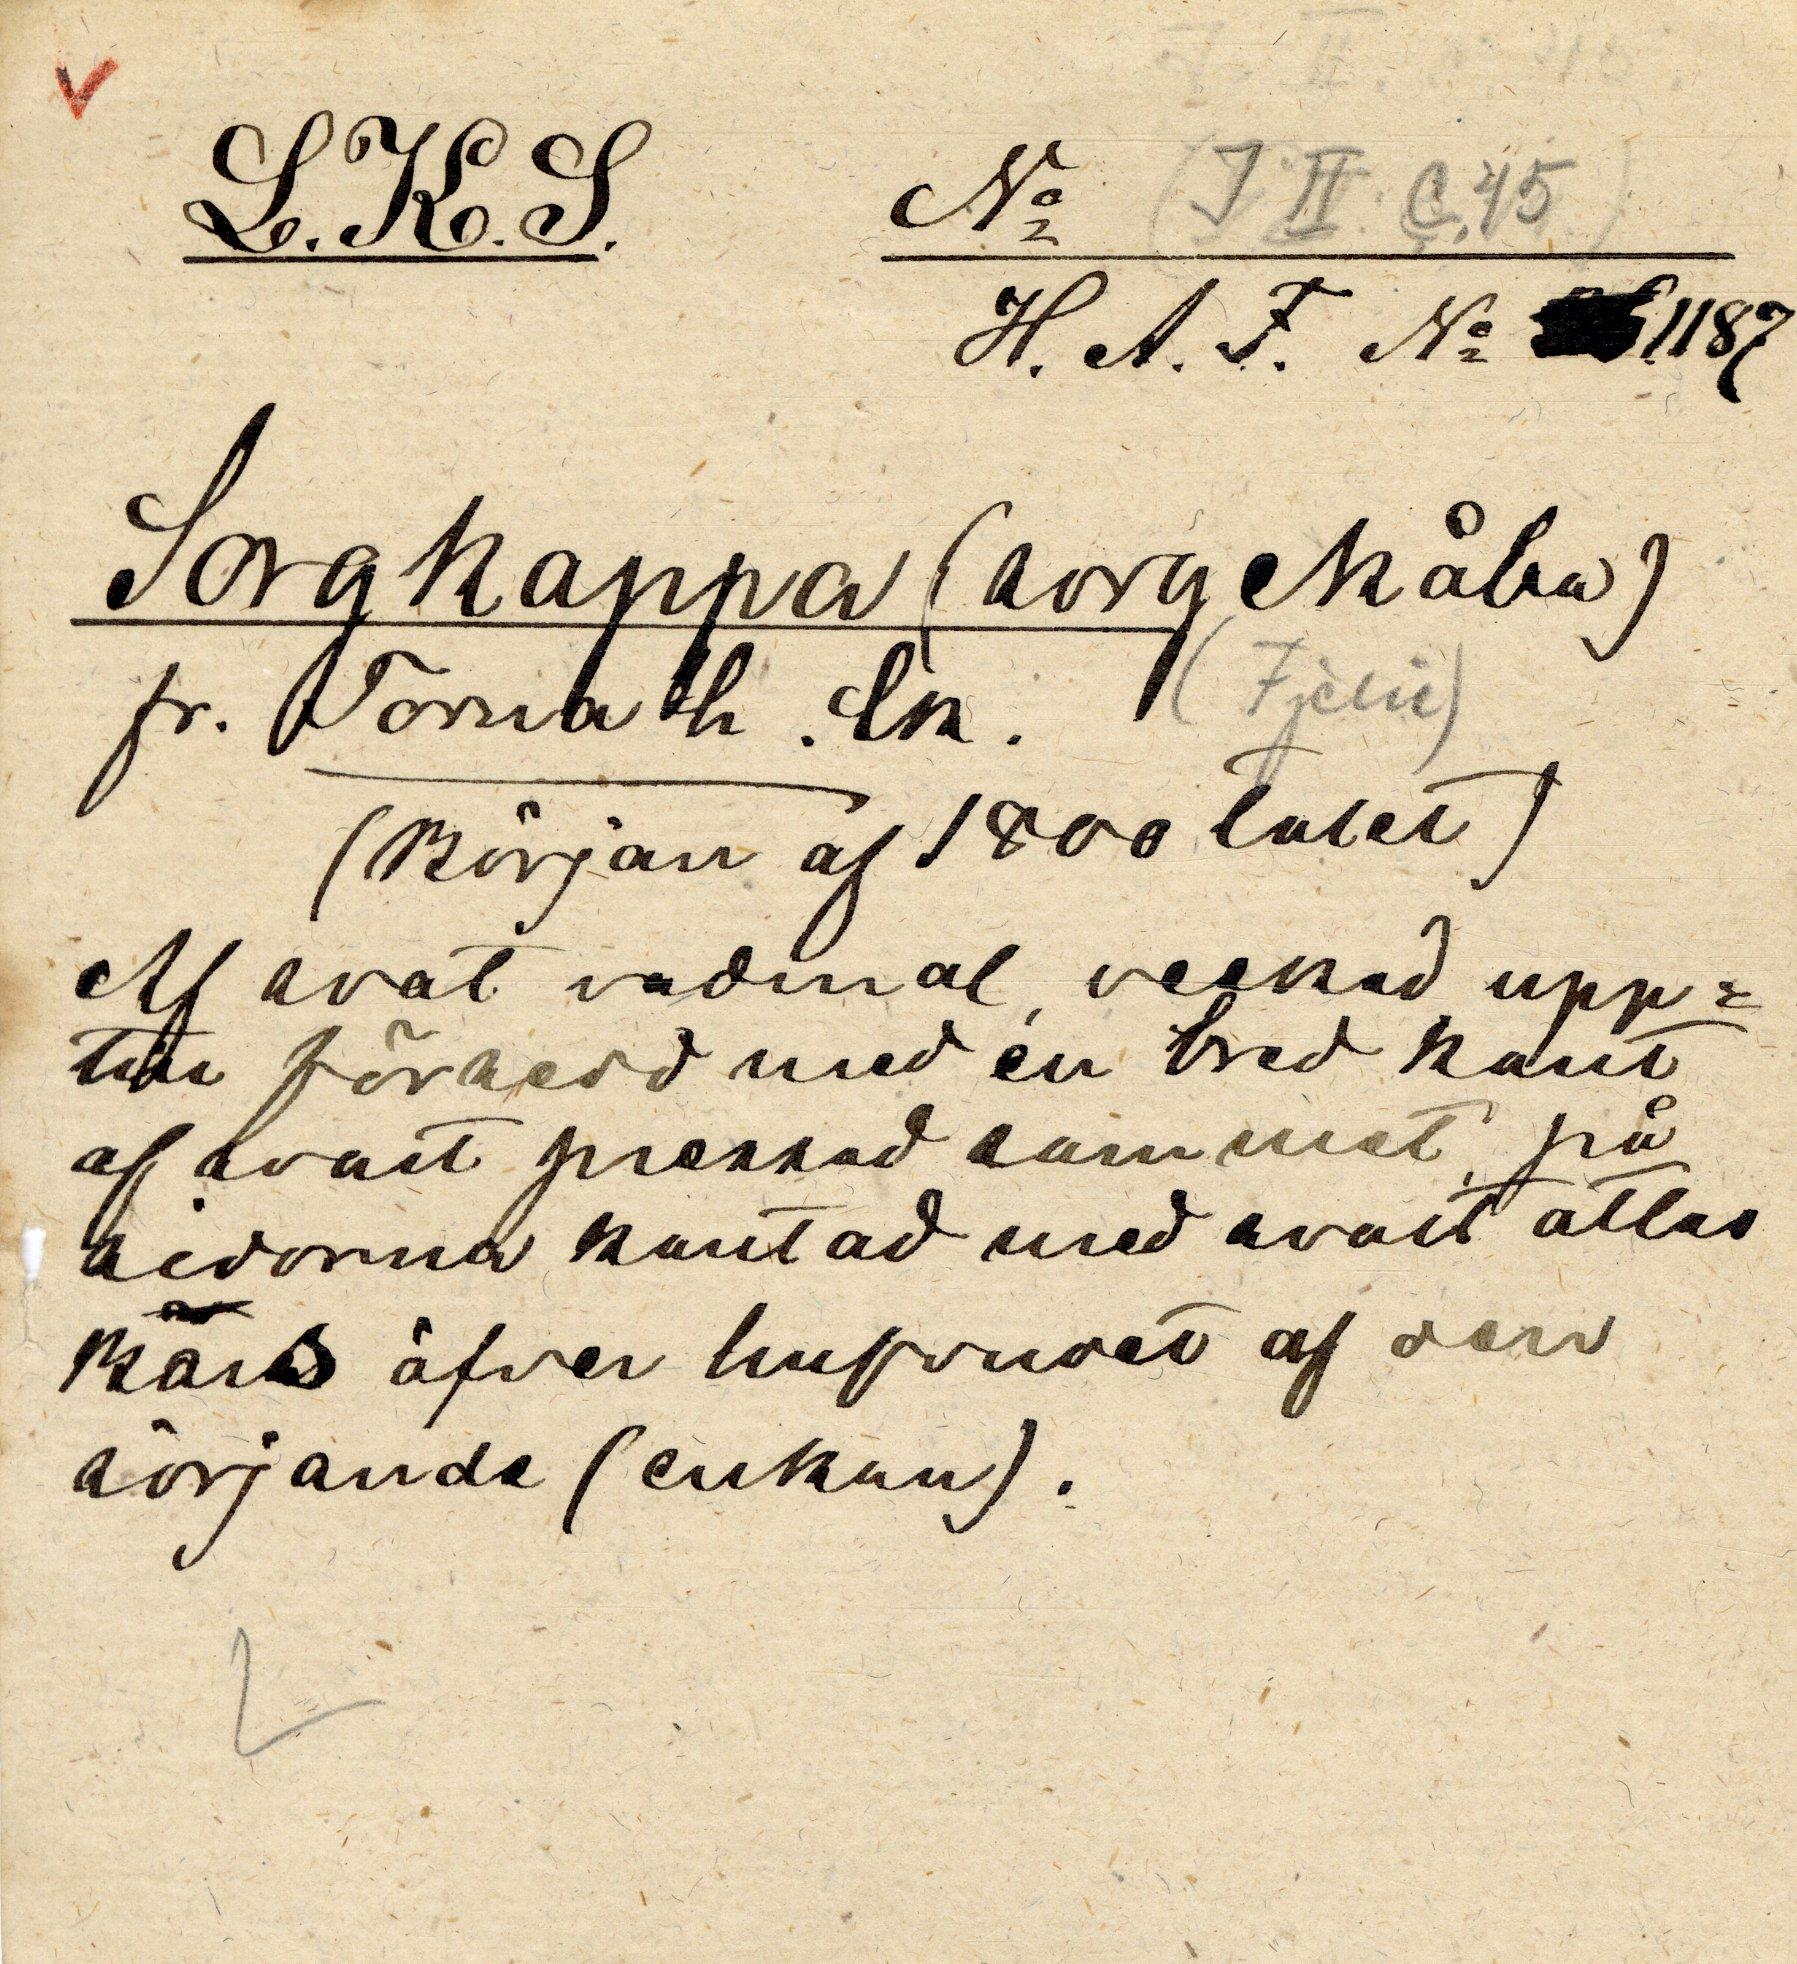 L.K.S. № (I II. C. 45)
H. A. F. № 1187
Sorgkappa (sorgekåba)
fr. Torna h. Sk. (Fjelie)
(Början af 1800 talet)
Af svat vadmal, veckad upp=
till försedd med en bred kant
af svart pressad sammet, på
sidorna kantad med svart atlas
Bärs öfver hufvudet af den
sörjande (enkan).